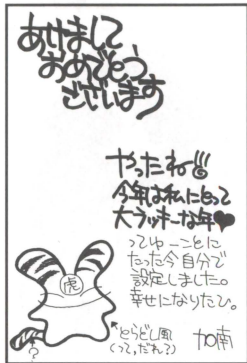 あけまして
おめでとう
ございます
やったね
今年は私にとって
大ラッキーな年♥
ってゆーことに
たった今自分で
設定しました。
幸せになりたひ。
虎
とらどし風
(って、だれ?)
加南
?